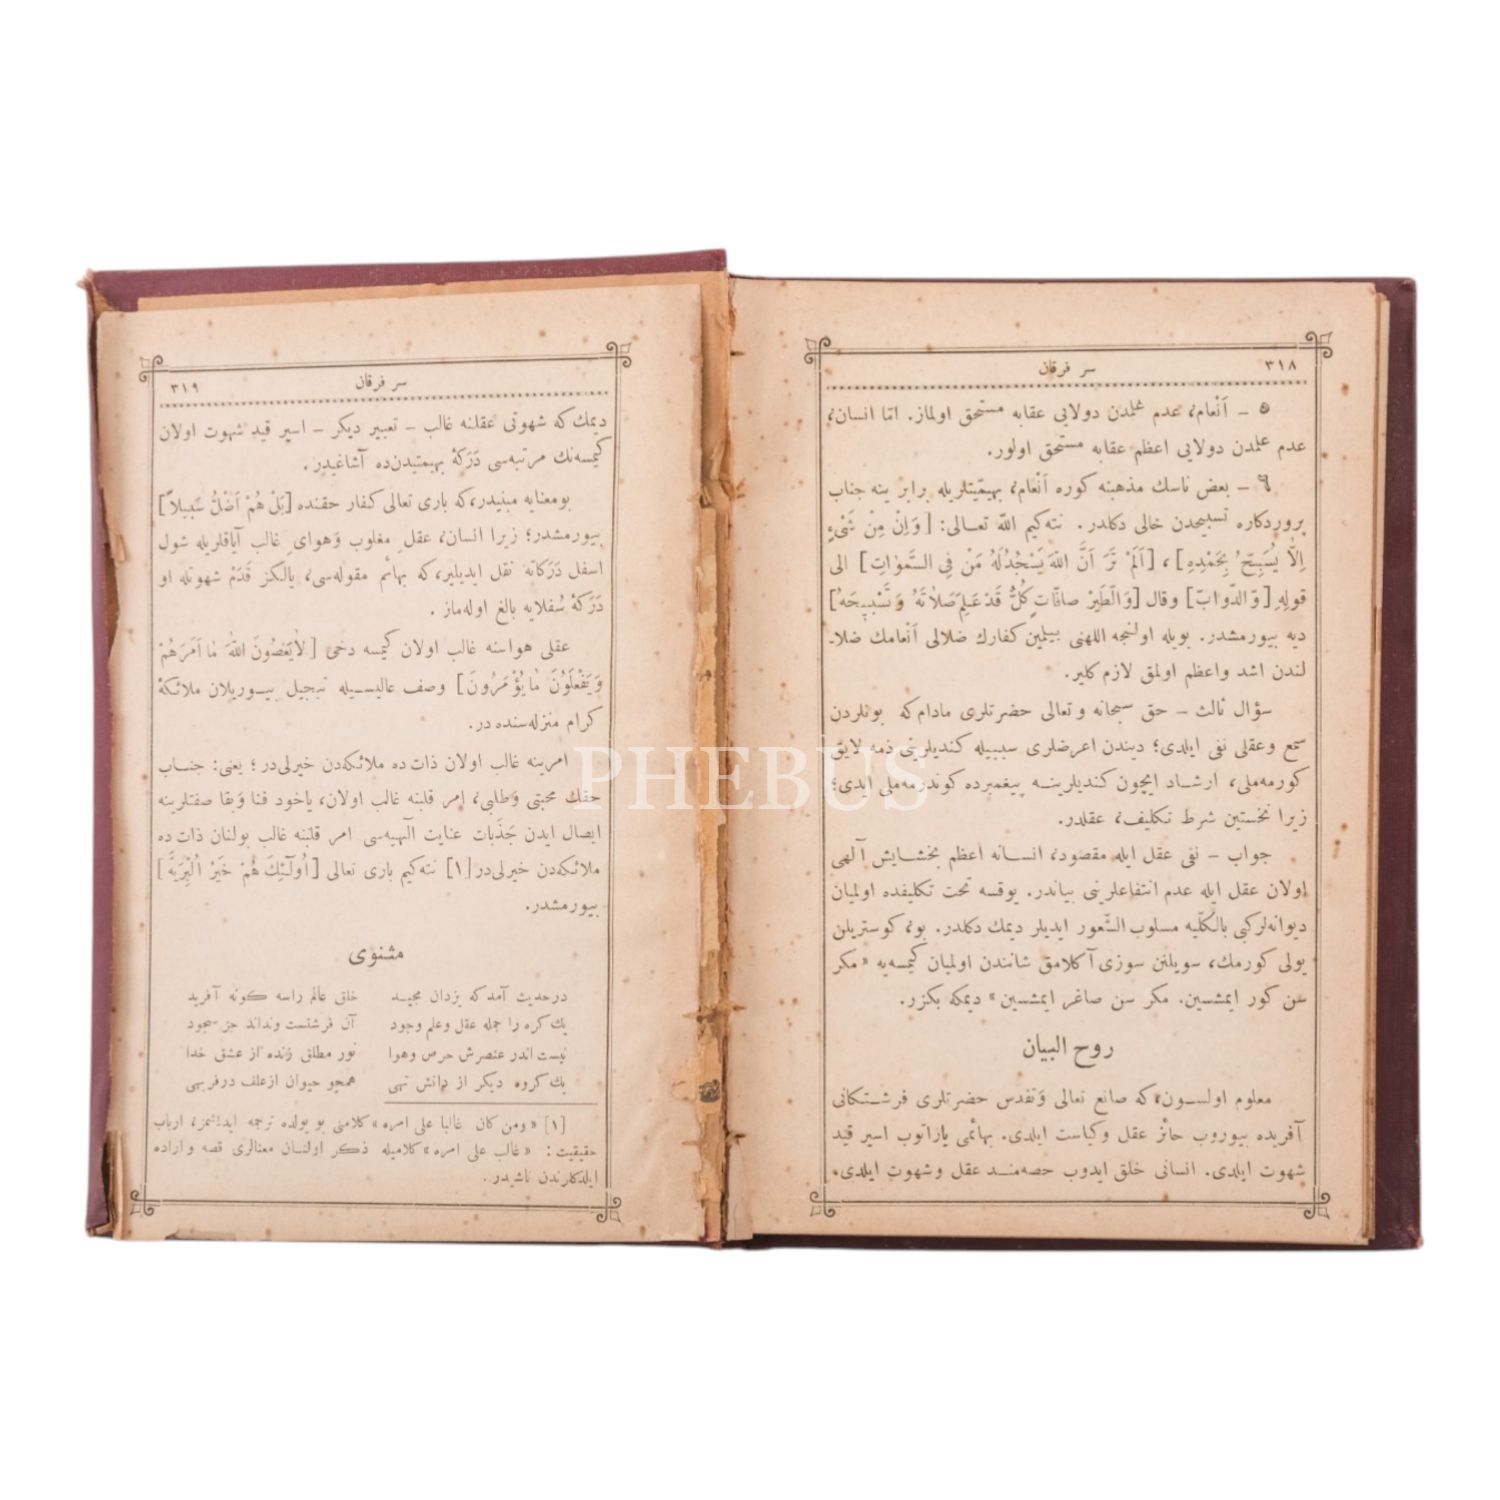 ٣١٨
سر فرقان
٥ – اَنْعام، عدم علمدن دولايى عقابه مستحق اولماز. اما انسان،
عدم علمدن دولايى اعظم عقابه مستحق اولور.
٦ – بعض ناسك مذهبنه كوره اَنْعام، بهيميتلريله برابر ينه جناب
پروردكاره تسبيحدن خالى دكلدر. نته‌كيم الله تعـالى: [وَاِنْ مِنْ شَىْءٍ
اِلَّا يُسَبِّحُ بِحَمْدِهِ]، [اَلَمْ تَرَ اَنَّ اللهَ يَسْجُدُ لَهُ مَنْ فِى السَّمٰوَاتِ] الى
قولهِ [وَ الدَّوَابّ] وقال [وَ الطَّيْرُ صافّاتٍ كُلٌّ قَدْ عَلِمَ صَلاتَهُ وَ تَسْبِيحَهُ]
ديه بيورمشدر. بويله اولنجه اللهنى بيلمين كفارك ضلالى اَنْعامك ضلا-
لندن اشد واعظم اولمق لازم كلير.
سؤال ثالث – حق سبحانه و تعالى حضرتلرى مادام كه بونلردن
سمع وعقلى نفى ايلدى؛ ديندن اعرضلرى سببيله كنديلرينى ذمه لايق
كورمه‌ملى، ارشـاد ايچون كنديلرينـه پيغمبرده كوندرمه‌ملى ايدى؛
زيرا نخستين شرط تكليف، عقلدر.
جواب – نفى عقل ايله مقصود، انسـانه اعظم بخشـايش آلهى
اولان عقل ايله عدم انتفاعلرينى بياندر. يوقسه تحت تكليفده اولميان
ديوانه‌لر كبى بالكليه مسلوب الشعور ايديلر ديمك دكلدر. بونى كوستريلن
يولى كورمك، سويلنن سوزى آكلامق شانندن اولميان كيمسه‌يه «مكر
سن كور ايمشسين. مكر سن صاغر ايمشسين» ديمكه بكزر.
روح البيان
معلوم اولسـون كه صانع تعالى وَتقدس حضرتلرى فرشتكانى
آفريده بيوروب حائز عقل وكياست ايلدى. بهائمى ياراتوب اسير قيد
شهوت ايلدى. انسانى خلق ايدوب حصه‌منـد عقل وشهوت ايلدى.
سر فرقان
٣١٩
ديمك كه شهوتى عقلنه غالب – تعبير ديكر – اسير قيد شهوت اولان
كيمسه‌نك مرتبه‌سى دَرَكهٔ بهيمتيدن‌ده آشاغيدر.
بومعنايه مبنيدر، كه بارى تعالى كفار حقنده [بَلْ هُمْ اَضَلُّ سَبِيلاً]
بيورمشدر؛ زيرا انسان، عقلِ مغلوب وَهواىِ غالب آياقلريله شول
اسفل دَرَكاته نقل ايديلير، كه بهائم مقوله‌سى، يالكز قَدَمْ شهوتله او
دَرَكهٔ سُفلايه بالغ اوله‌ماز.
عقلى هواسنه غالب اولان كيمسه دخى [لَايَعْصُونَ اللهَ مٰا اَمَرَهُمْ
وَيَفْعَلُونَ مٰايُؤْمَرُونَ] وصف عاليسـيله تبجيل بيـوريلان ملائكهٔ
كرام منزله‌سنده در.
امرينه غالب اولان ذات ده ملائكه‌دن خيرلى‌در؛ يعنى: جنـاب
حقك محبتى وَطلبى، امر قلبنه غالب اولان، ياخود فنا وَبقا صفتلرينه
ايصال ايدن جَذَبات عنايت آلهيه‌سى امر قلبنه غالب بولنان ذات ده
ملائكه‌دن خيرلى‌در [١] نته‌كيم بارى تعالى [اُولٓئِكَ هُمْ خَيْرُ الْبَرِيَّةِ]
بيورمشدر.
مثنوى
درحديث آمد كه يزدان مجيـد خلق عالم راسه كونه آفريد
يك كره را جمله عقل وعلم وجود آن فرشتست ونداند جز سجود
نيست اندر عنصرش حرص وهوا نور مطلق زنده از عشق خدا
يك كروه ديكر از دانش تهى همچو حيوان ازعلف درفربهى
[١] «ومن كان غالبا على امره» كلامنى بو يولده ترجمه ايدلشمز، ارباب
حقيقيت: «غالب على امره» كلاميله ذكر اولنـان معنالرى قصه و اراده
ايلدكلرندن ناشيدر.
PHEBUS